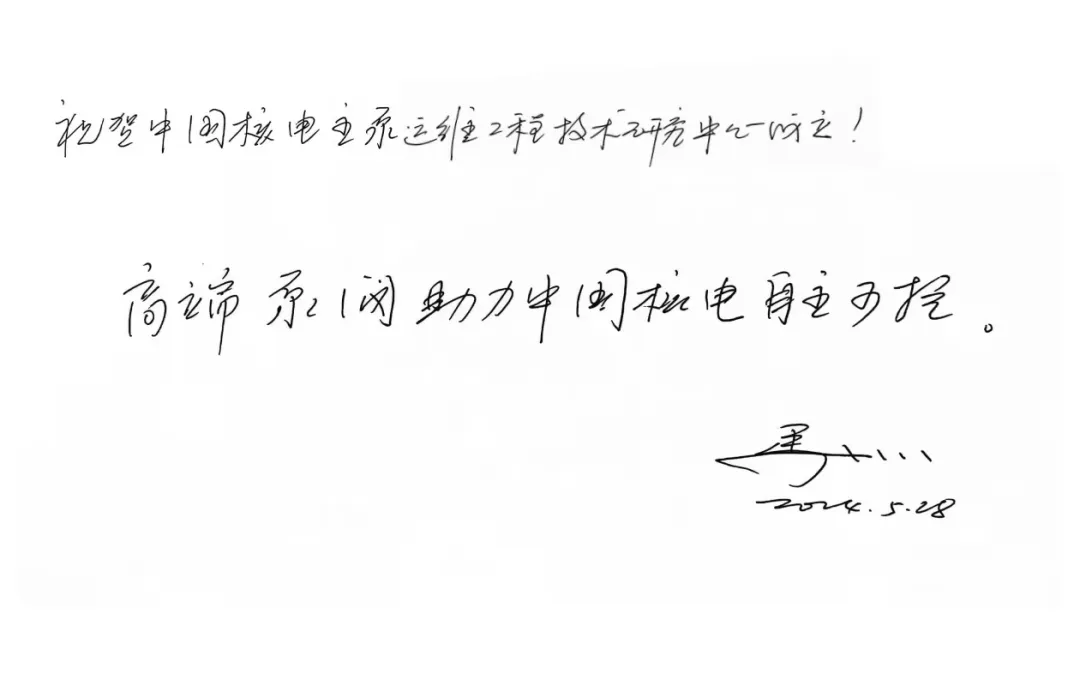 祝贺中国核电主泵运维工程技术研究中心成立！
高端泵阀助力中国核电自主可控。
2024.5.28